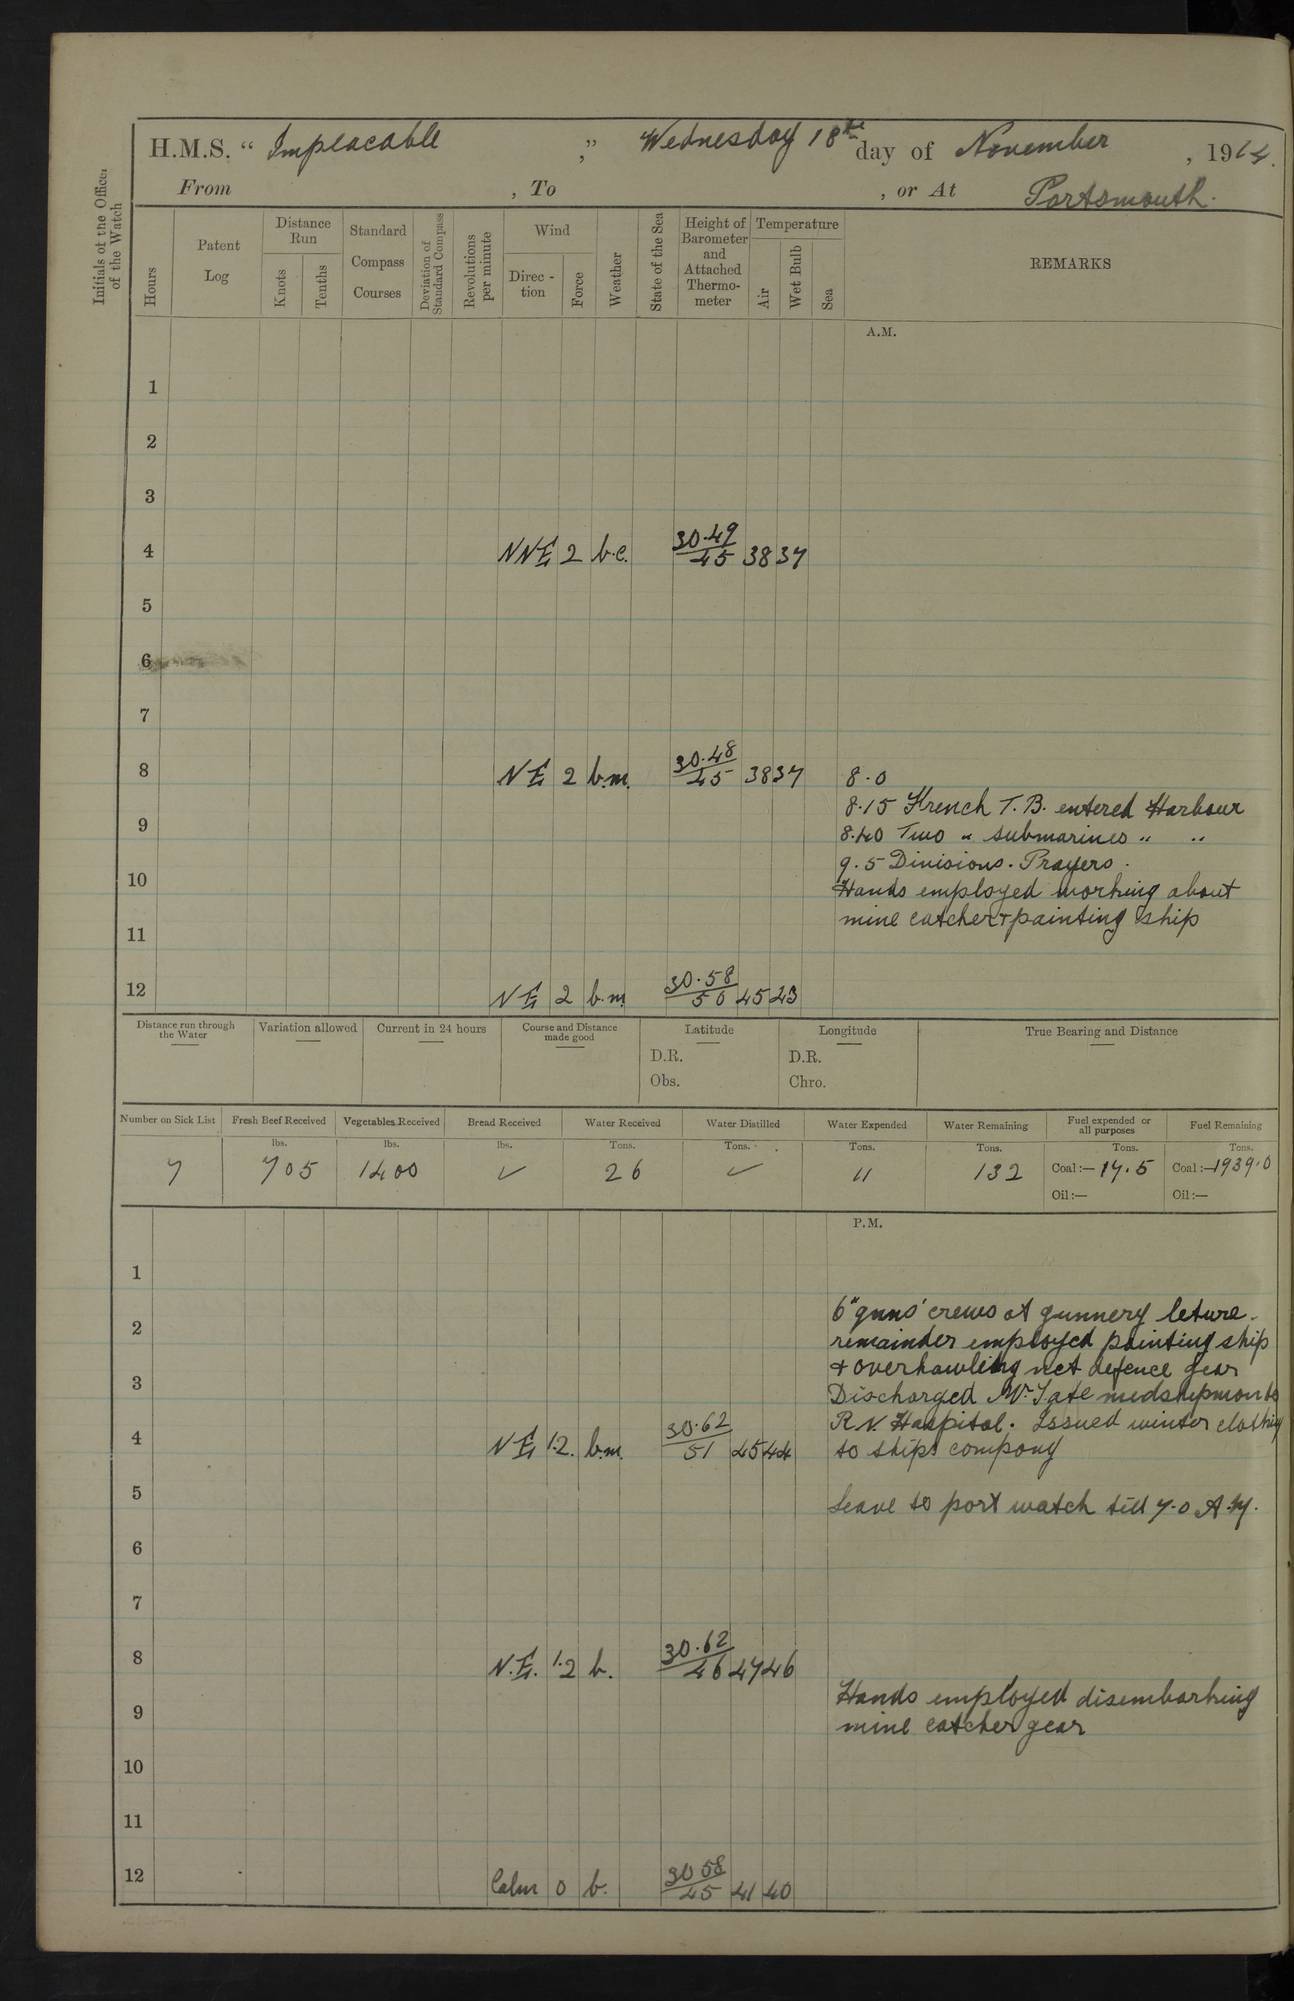 H.M.S. “ Impeacable ,” Wednesday 18th day of November , 1914.
From , To , or At Portsmouth.
Initials of the Officer of the Watch
Hours
Patent Log
Distance Run
Knots
Tenths
Standard Compass Courses
Deviation of Standard Compass
Revolutions per minute
Wind
Direc-tion
Force
Weather
State of the Sea
Height of Barometer and Attached Thermo-meter
Temperature
Air
Wet Bulb
Sea
REMARKS
A.M.
1
2
3
4 NNE 2 b.c. 30.49/45 38 37
5
6
7
8 NE 2 b.m. 30.48/45 38 37 8.0
8.15 French T.B. entered Harbour
9 8.40 Two " submarines " "
9.5 Divisions. Prayers.
10 Hands employed working about
mine catcher + painting ship
11
12 NE 2 b.m. 30.58/50 45 43
Distance run through the Water
Variation allowed
Current in 24 hours
Course and Distance made good
Latitude
D.R.
Obs.
Longitude
D.R.
Chro.
True Bearing and Distance
Number on Sick List Fresh Beef Received Vegetables Received Bread Received Water Received Water Distilled Water Expended Water Remaining Fuel expended or all purposes Fuel Remaining
lbs. lbs. lbs. Tons. Tons. Tons. Tons. Tons. Tons.
7 705 1400 ✓ 26 ✓ 11 132 Coal:— 17.5 Coal:— 1939.0
Oil:— Oil:—
P.M.
1
6" guns' crews at gunnery leture.
2 remainder employed painting ship
+ overhawling net defence gear
3 Discharged Mr. Tate midshipman to
R.N. Haspital. Issued winter clothing
4 NE 1.2. b.m. 30.62/51 45 44 to ships company
5 Leave to port watch till 7.0 A.M.
6
7
8 N.E. 1.2 b. 30.62/46 47 46
Hands employed disembarking
9 mine catcher gear
10
11
12 Calm 0 b. 30 58/45 41 40